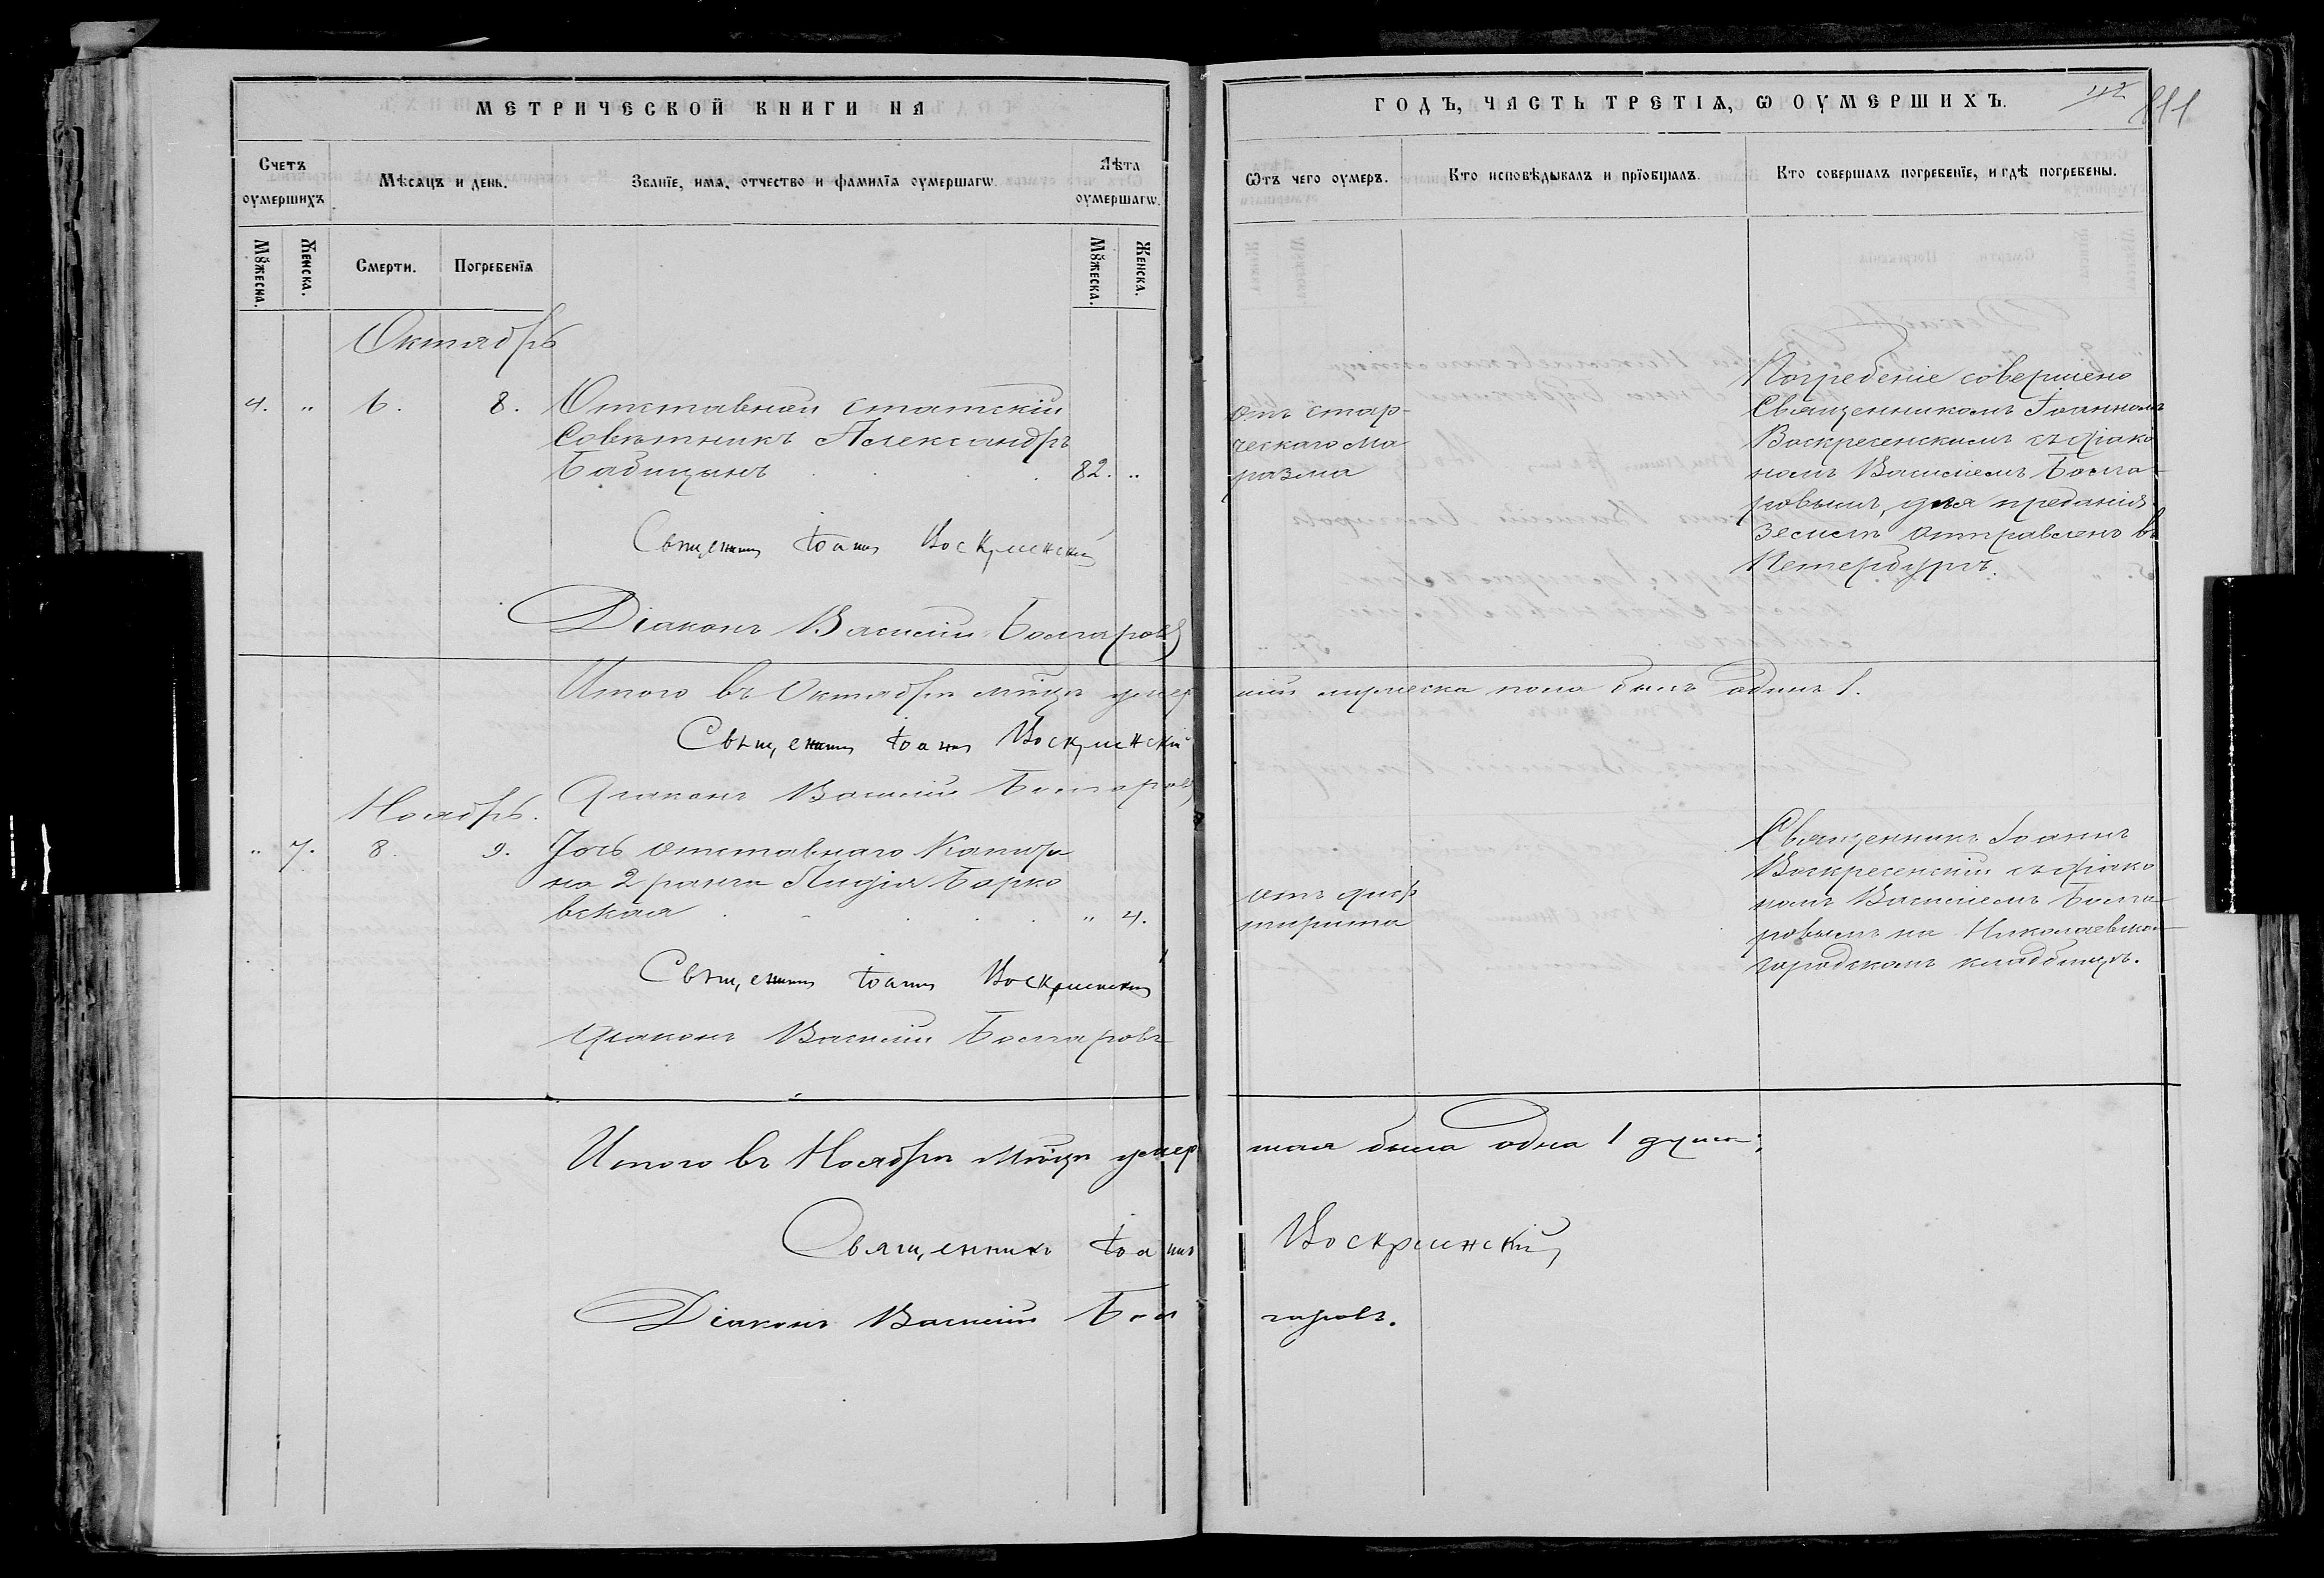 МЕТРИЧЕСКОЙ КНИГИ НА
ГОДЪ, ЧАСТЬ ТРЕТІѦ, Ѡ ОУМЕРШИХЪ.
112
811
Счетъ оумершихъ
Мѣсяцъ и день.
Званїе, имѧ, отчество и фамилїѧ оумершагѡ.
Лѣта оумершагѡ.
Ѿтъ чего оумеръ.
Кто исповѣдывалъ и прїобщалъ.
Кто совершалъ погребенїе, и гдѣ погребены.
Мꙋжеска.
Женска.
Смерти.
Погребенїѧ
Мꙋжеска.
Женска.
Октябрь
4. " 6. 8. Отставной Статскій
Совѣтникъ Александръ
Бабицынъ 82. "
отъ стар-
ческаго ма
разма
Погребеніе совершено
Священникомъ Іоанномъ
Воскресенскимъ съ діако
номъ Василіемъ Болга-
ровымъ, для преданія
землѣ отправленъ въ
Петербургъ.
Священникъ Іоаннъ Воскресенскій
Діаконъ Василій Болгаровъ
Итого въ Октябрѣ мѣсяцѣ умер
шій мужеска пола былъ одинъ 1.
Священникъ Іоаннъ Воскресенскій
Діаконъ Василій Болгаровъ
Ноябрь.
" 7. 8. 9. Дочь отставнаго Капита
на 2 ранга Лидія Барко
вская " 4.
отъ диф
терита
Священникъ Іоаннъ
Воскресенскій съ діако
номъ Василіемъ Болга-
ровымъ на Николаевском
городскомъ кладбищѣ.
Священникъ Іоаннъ Воскресенскій
Діаконъ Василій Болгаровъ
Итого въ Ноябрѣ мѣсяцѣ умер
шая была одна 1 душа.
Священникъ Іоаннъ Воскресенскій
Діаконъ Василій Болгаровъ.